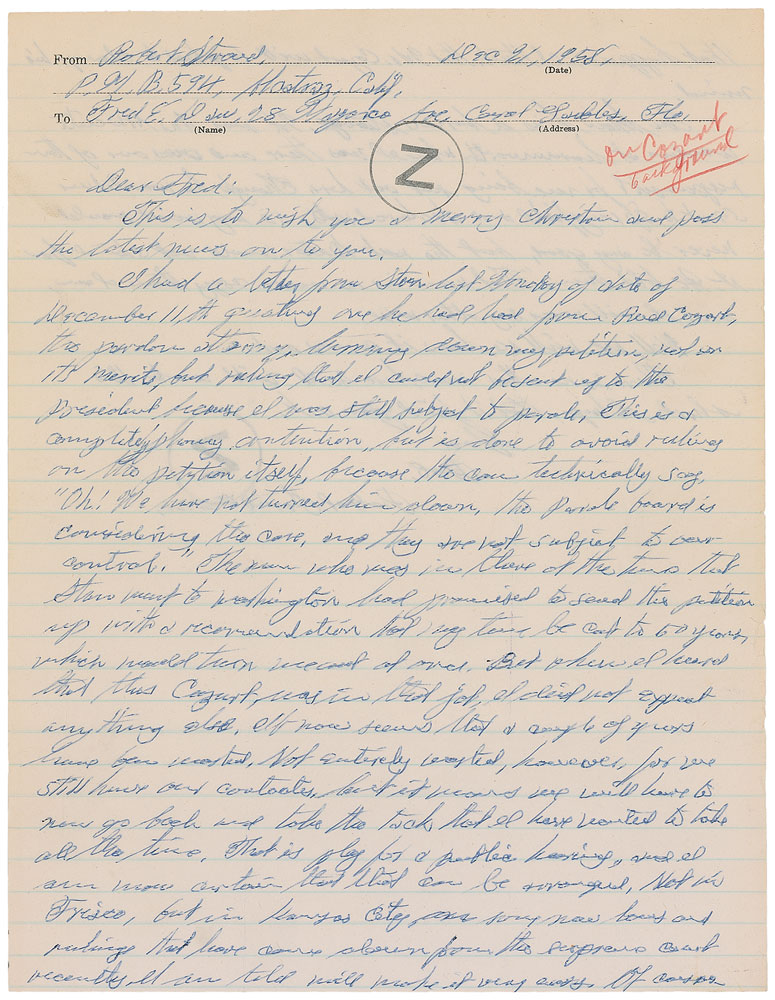 From Robert Stroud, Dec 21, 1958,
(Date)
P.M.B. 594, Alcatraz, Calif,
To Fred E. Daw, 28 Ave, Coral Gables, Fla,
(Name) (Address)
on Cozart
background
N
Dear Fred:
This is to wish you a merry Christmas and pass
the latest news on to you.
I had a letter from Stan last Monday of date of
December 11,th quoting one he had had from Reed Cozart,
the pardon attorny, turning down my petition, not on
its merits, but ruling that I could not be sent up to the
President because I was still subject to parole. This is a
completely phony contention, but is done to avoid ruling
on the petition itself, because the can technically say,
"Oh! We have not turned him down, the Parole board is
considering the case, and they are not subject to our
control." The man who was in there at the time that
Stan went to Washington had promised to send the petition
up with a recomendation that my time be cut to 60 years,
which would turn me out at once. But when I heard
that this Cozart, was in that job, I did not expect
anything else. It now seems that a couple of years
have been wasted. Not entirely wasted, however, for we
still have our contacts, but it means we will have to
now go back and take the tack that I have wanted to take
all the time. That is play for a public hearing, and I
am now certain that that can be arranged, Not in
Frisco, but in Kansas City, new laws and
rulings that have come down from the supreme court
recently I am told will make it very easy. Of course